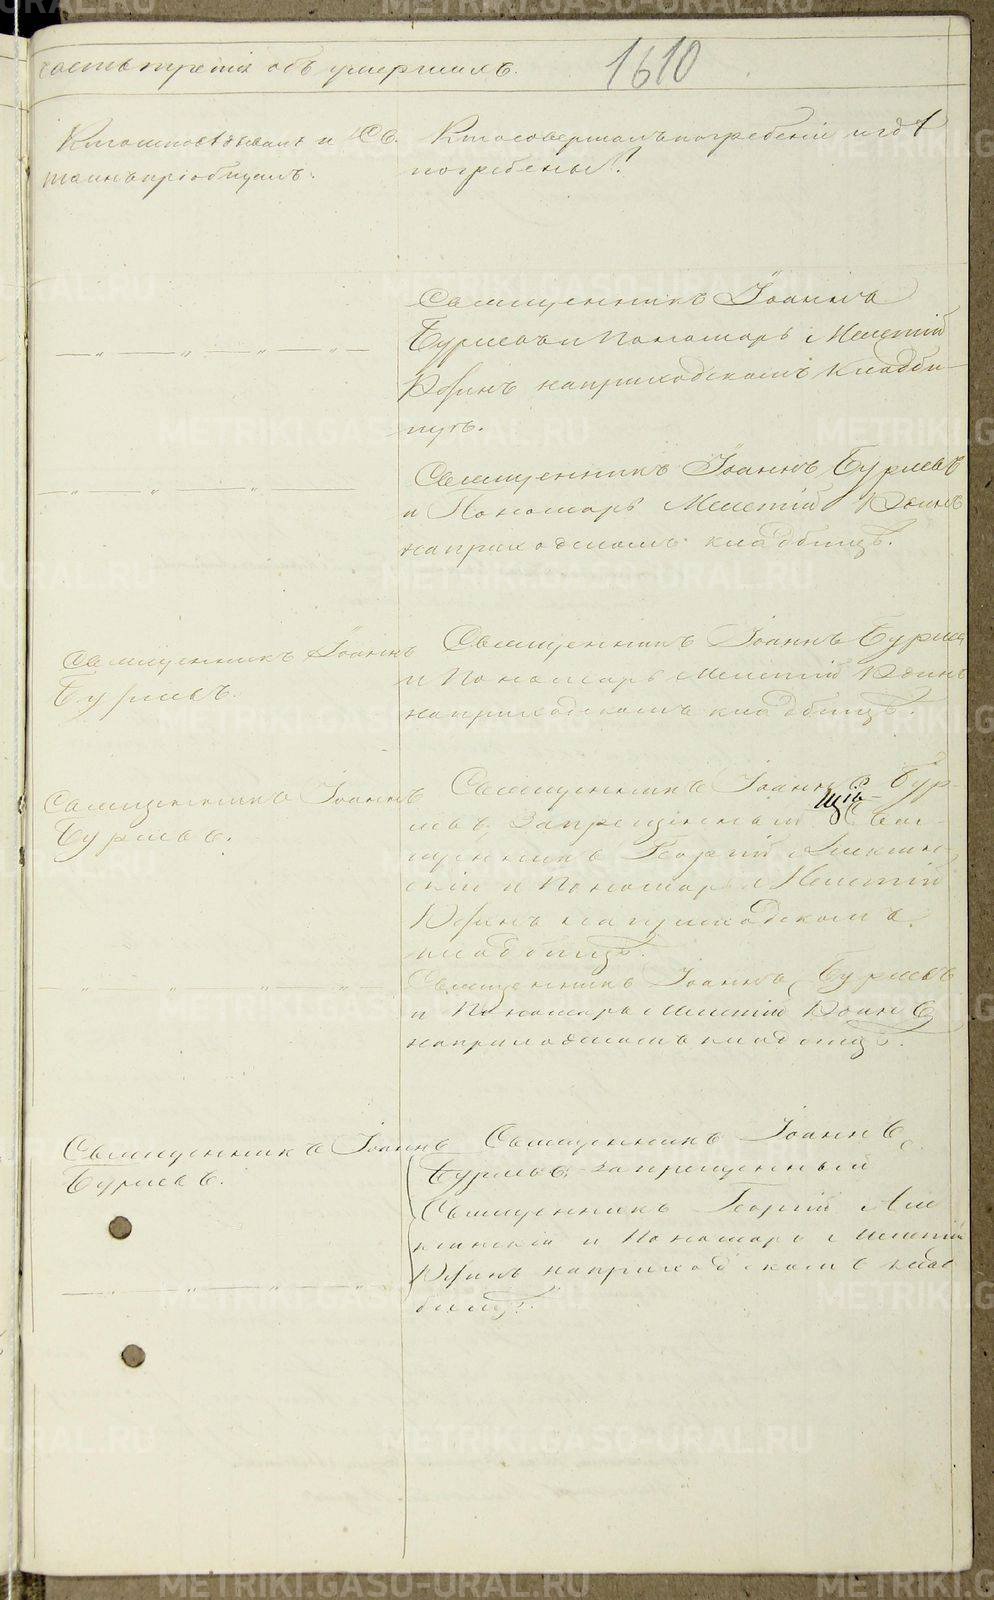 часть третія объ умершихъ.
1610
Кто исповѣдывалъ и Св.
таинъ пріобщалъ.
Кто совершалъ погребеніе и гдѣ
погребены?
Священникъ Іоаннъ
и Пономарь Мелетій
на приходскомъ кладби-
щѣ.
Священникъ Іоаннъ Бурмевъ
и Пономарь Мелетій
на приходскомъ кладбищѣ.
Священникъ Іоаннъ
Бурмевъ.
Священникъ Іоаннъ
и Пономарь Мелетій
на приходскомъ кладбищѣ.
Священникъ Іоаннъ
Бурмевъ.
Священникъ Іоаннъ Бур-
мевъ, Запрещенный Свя-
щенникъ Георгій
и Пономарь Мелетій
на приходскомъ
кладбищѣ.
Священникъ Іоаннъ Бурмевъ
и Пономарь Мелетій
на приходскомъ кладбищѣ.
Священникъ Іоаннъ
Бурмевъ.
Священникъ Іоаннъ
Бурмевъ, Запрещенный
Священникъ Георгій
и Пономарь Мелетій
на приходскомъ клад
бищѣ.
METRIKI.GASO-URAL.RU